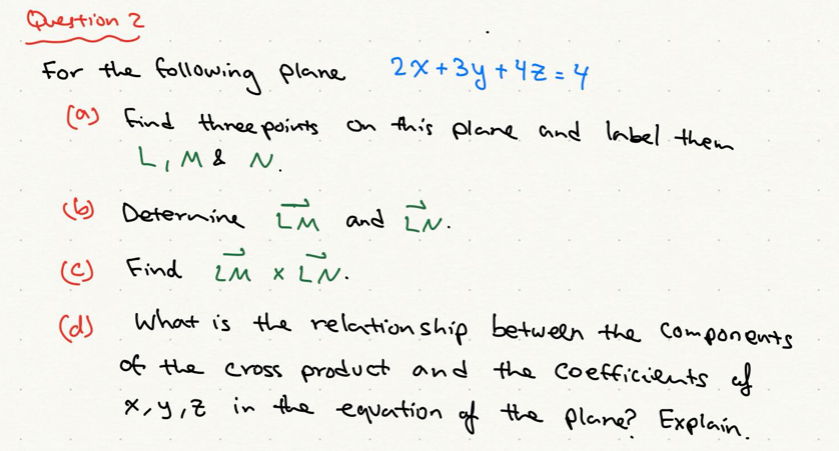 Question 2
For the following plane 2x+3y+4z=4
(a) Find three points on this plane and label them
L, M & N.
(b) Determine $\overrightarrow{LM}$ and $\overrightarrow{LN}$.
(c) Find $\overrightarrow{LM}$ × $\overrightarrow{LN}$.
(d) What is the relationship between the components
of the cross product and the coefficients of
x, y, z in the equation of the plane? Explain.